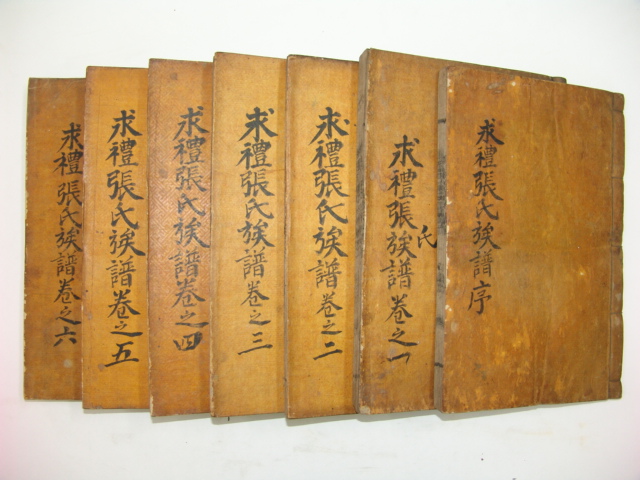 求禮張氏族譜序
求禮張氏族譜卷之一
求禮張氏族譜卷之二
求禮張氏族譜卷之三
求禮張氏族譜卷之四
求禮張氏族譜卷之五
求禮張氏族譜卷之六